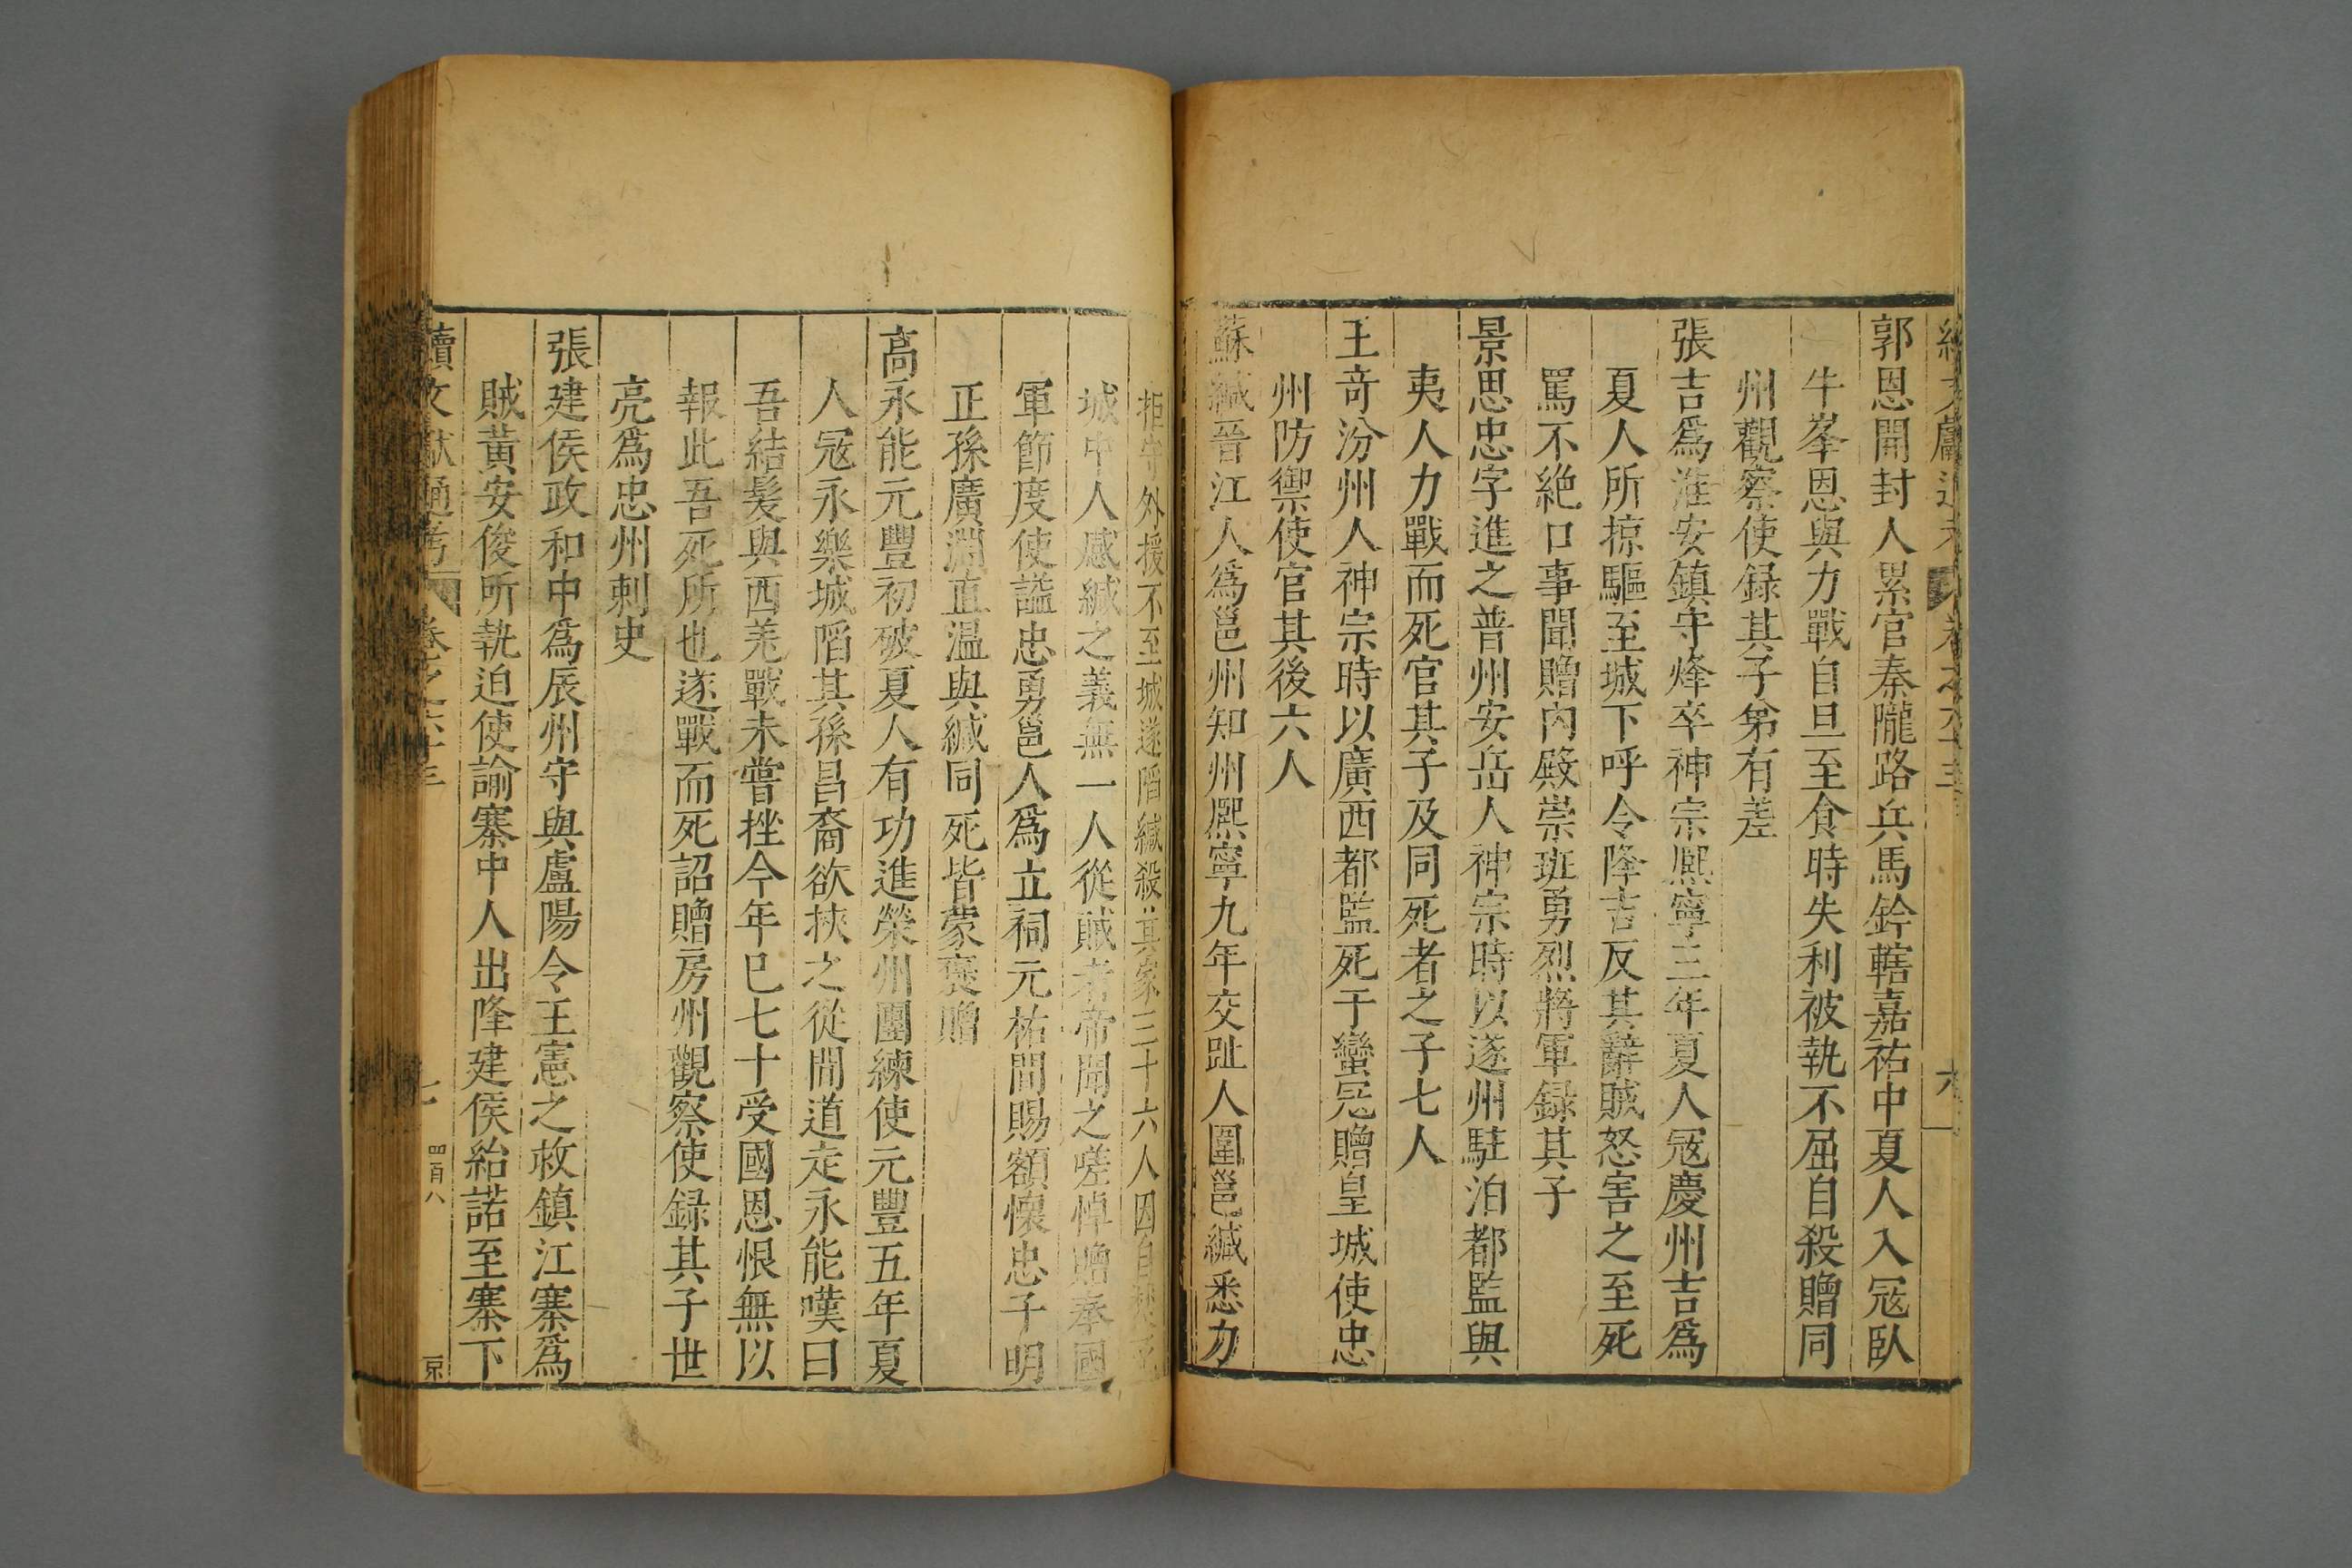 郭恩開封人累官秦隴路兵馬鈐轄嘉祐中夏人入冦臥
牛峯恩與力戰自旦至食時失利被執不屈自殺贈同
州觀察使録其子弟有差
張吉爲淮安鎮守烽卒神宗熈寧三年夏人冦慶州吉爲
夏人所掠驅至城下呼令降吉反其辭賊怒害之至死
罵不絶口事聞贈内殿崇班勇烈將軍録其子
景思忠字進之普州安岳人神宗時以遂州駐泊都監與
夷人力戰而死官其子及同死者之子七人
王竒汾州人神宗時以廣西都監死于蠻冦贈皇城使忠
州防禦使官其後六人
蘇緘晉江人爲邕州知州熈寧九年交趾人圍邕緘悉力
拒守外援不至城遂陷緘殺其家三十六人因自焚死
城中人感緘之義無一人從賊者帝聞之嗟悼贈奉國
軍節度使謚忠勇邕人爲立祠元祐間賜額懷忠子明
正孫廣淵直温與緘同死皆蒙褒贈
高永能元豐初破夏人有功進榮州團練使元豐五年夏
人冦永樂城陷其孫昌裔欲挾之從間道走永能嘆曰
吾結髪與西羌戰未嘗挫今年巳七十受國恩恨無以
報此吾死所也遂戰而死詔贈房州觀察使録其子世
亮爲忠州刺史
張建侯政和中爲辰州守與盧陽令王憲之救鎮江寨爲
賊黃安俊所執迫使諭寨中人出降建侯紿諾至寨下
續文獻通考 卷之六十三 七 四百八 京